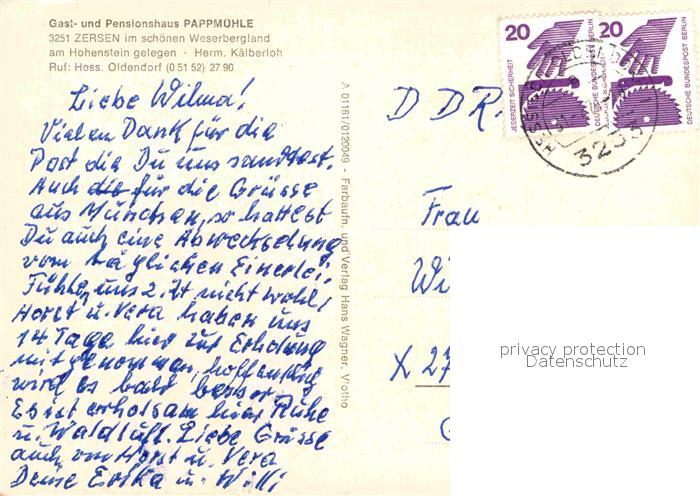 Gast- und Pensionshaus PAPPMÜHLE
3251 ZERSEN im schönen Weserbergland
am Hohenstein gelegen · Herm. Kälberloh
Ruf: Hess. Oldendorf (0 51 52) 27 90
Liebe Wilma!
Vielen Dank für die
Post die Du uns sandtest.
Auch die für die Grüsse
aus München, so hattest
Du auch eine Abwechselung
vom täglichen Einerlei.
Fühlen uns z. Zt nicht wohl,
Horst u. Vera haben uns
14 Tage hier zur Erholung
mitgenommen, hoffentlich
wird es bald besser.
Es ist erholsam hier Ruhe
u. Waldluft. Liebe Grüsse
auch von Horst u. Vera
Deine Erika u. Willi
A 01161/0120049 - Farbaufn. und Verlag Hans Wagner, Vlotho
DDR.
Frau
Wi
X 27
20
JEDERZEIT SICHERHEIT
DEUTSCHE BUNDESPOST BERLIN
20
DEUTSCHE BUNDESPOST BERLIN
3253
privacy protection
Datenschutz